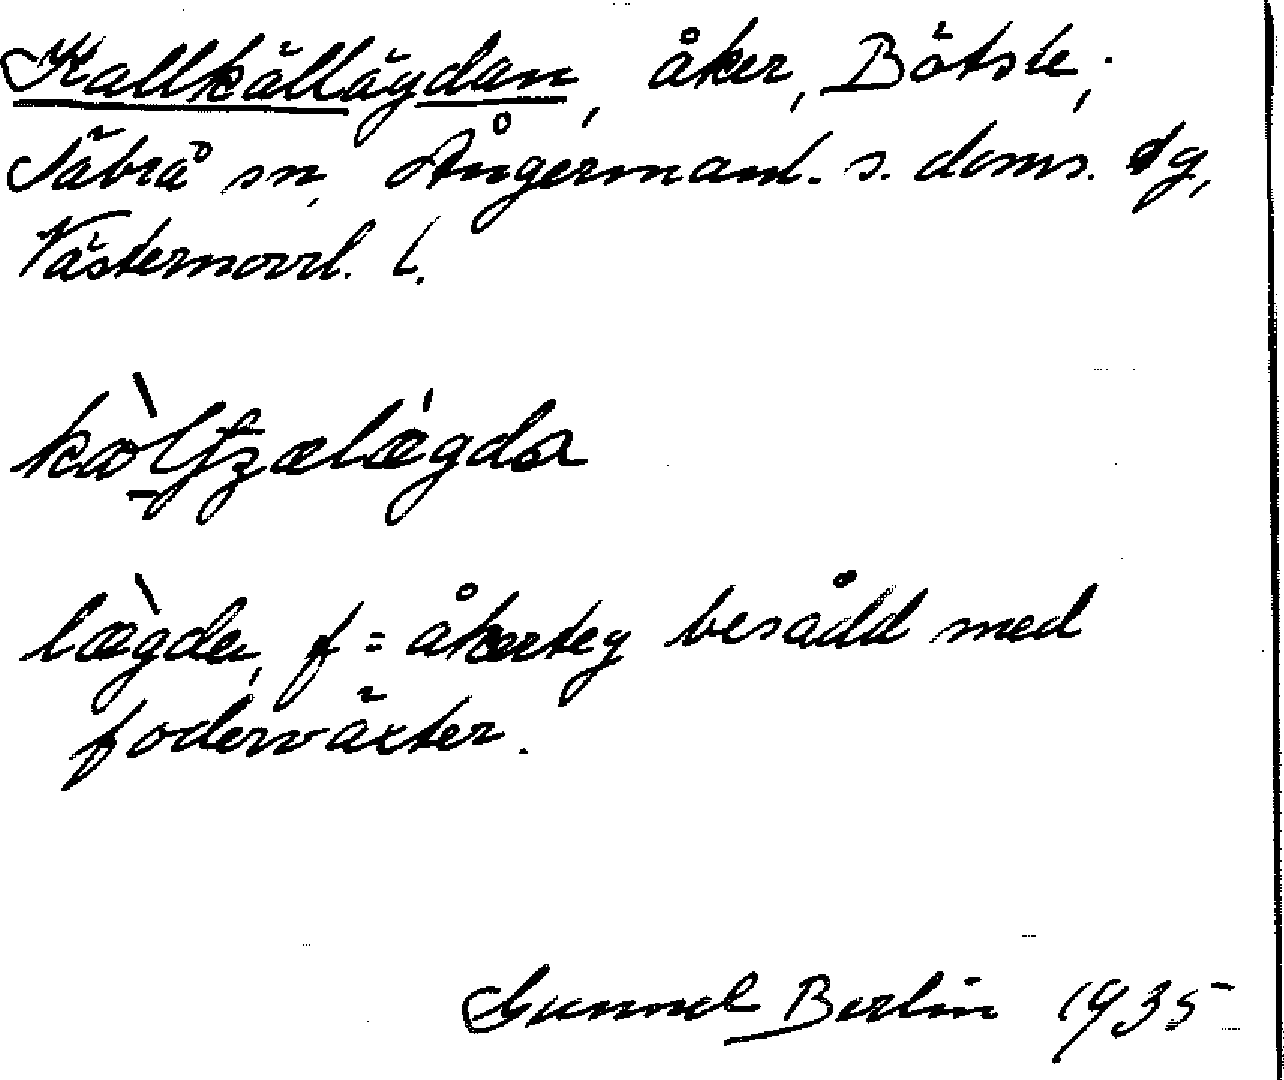 Kallkällägdan, åker, Bölste,
Säbrå sn, Ångermanl. s. doms. dg,
Västernorrl. l.
lægda, f = åkerteg besådd med
foderväxter.
Gunnel Berlin 1935